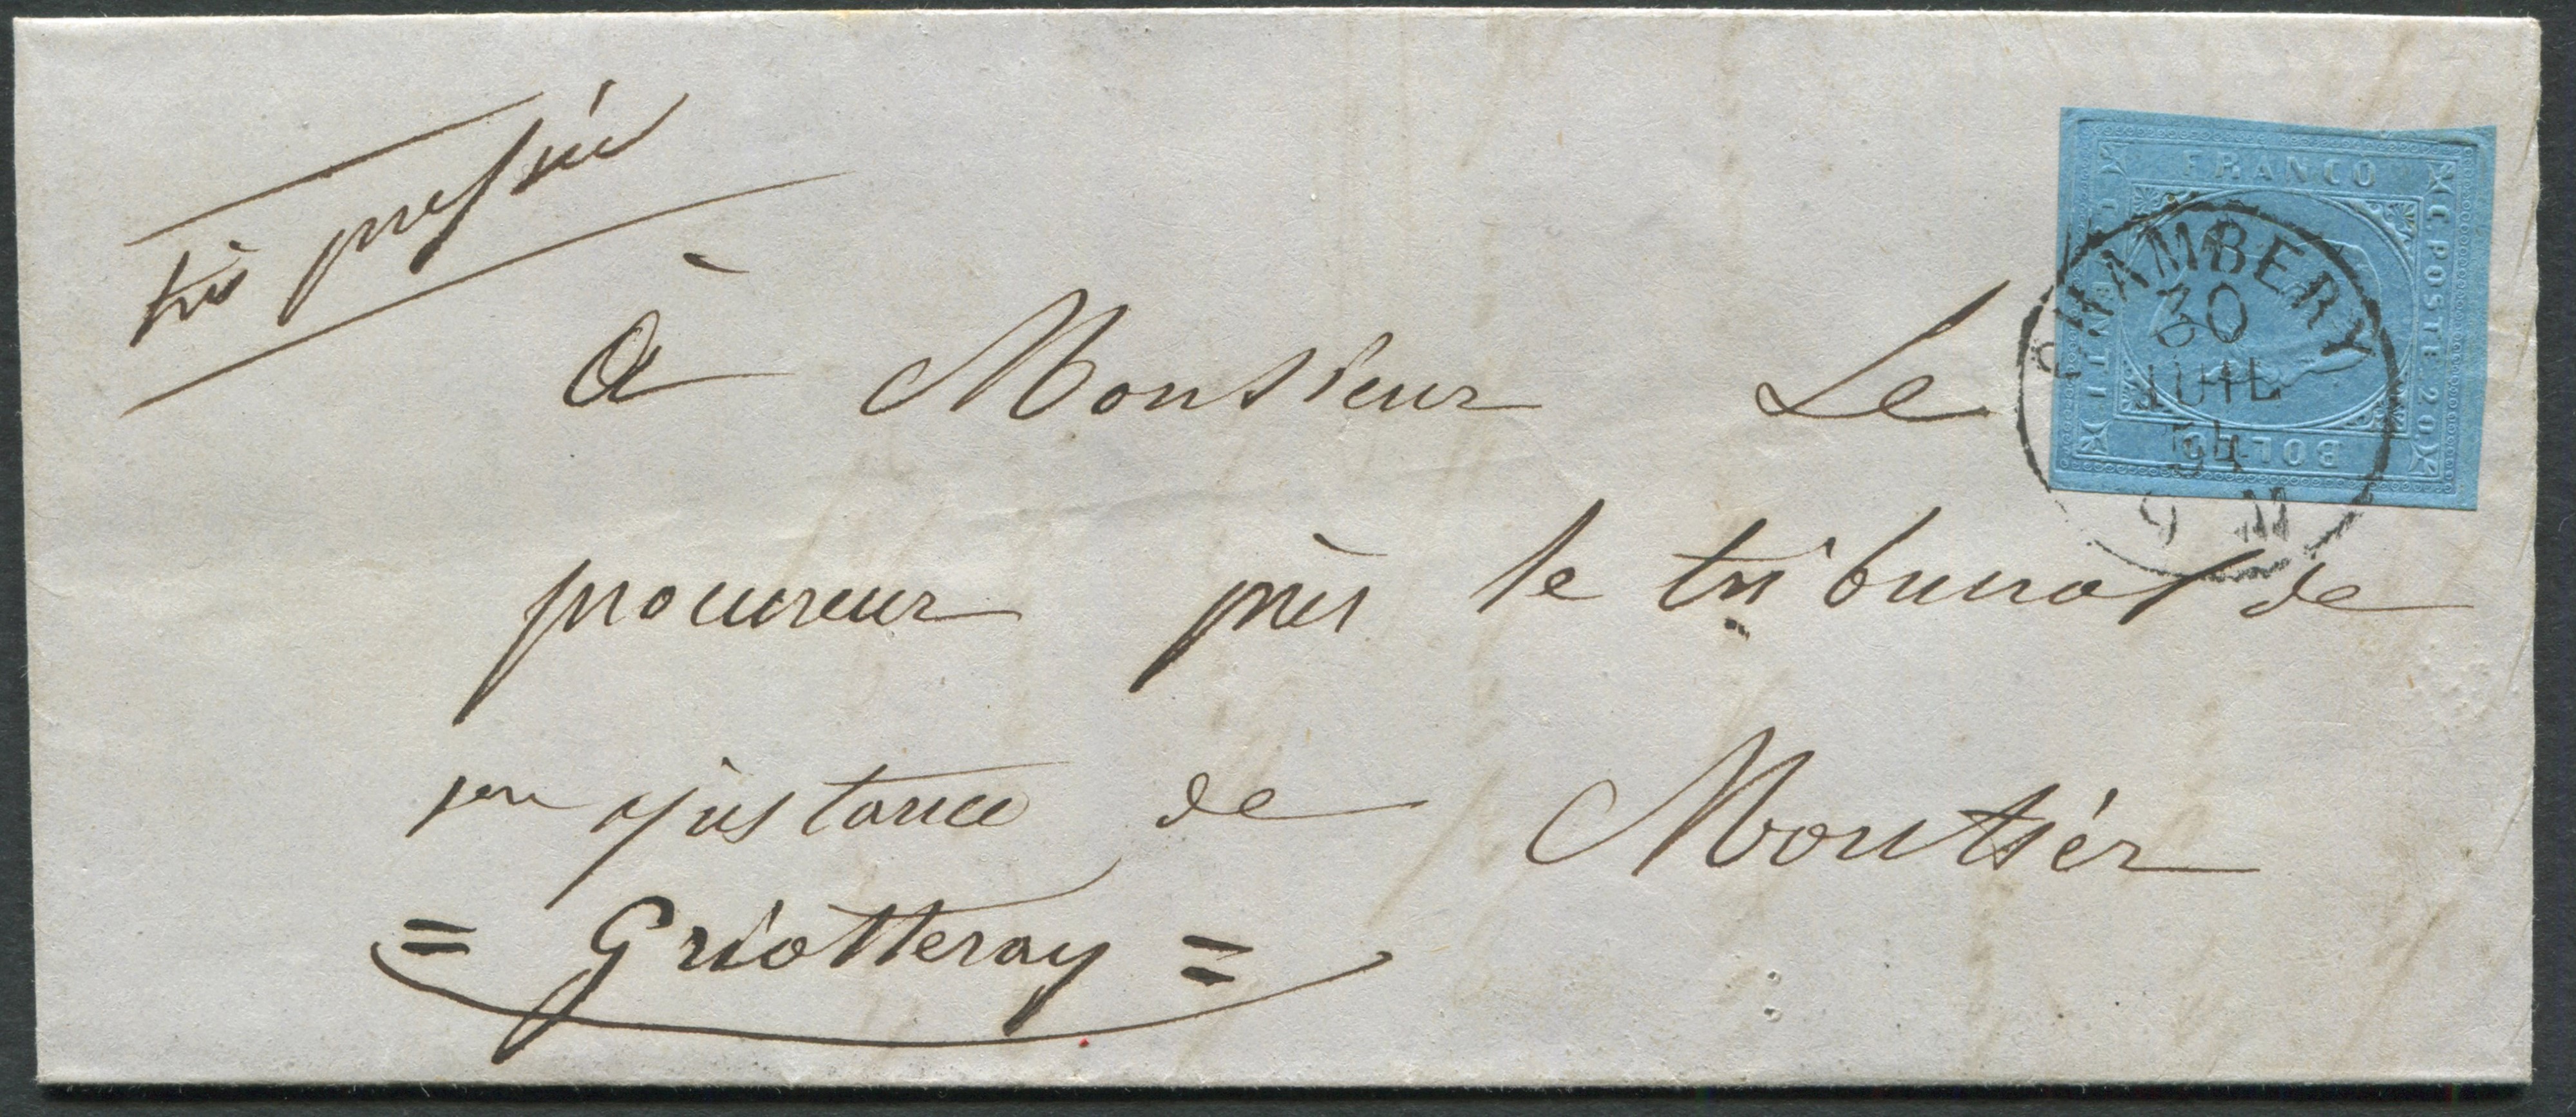 très pressée
à Monsieur Le
procureur près le tribunal de
justance de Moutier
= Griotteray =
FRANCO
C. POSTE 20.
BOLLO
CENTI
CHAMBERY
30
JUIL
54